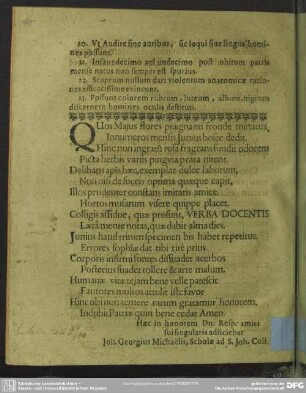 20. Vt Audire sine auribus, sic loqui sine lingua homines possunt.
21. Infans decimo vel undecimo post obitum patris
mense natus non semper est spurius.
22. Stuprum nullum dari violentum anatomicæ rationes
efficacissime evincunt.
23. Possunt colorem rubrum, luteum, album, nigrum
discernere homines oculis destituti.
QUos Majus flores prægnanti fronde
Innumeros mensis Junius hosce dedit.
Hinc non ingratū rosa fragrans fundit odorem
Picta herbis variis pingvia prata nitent.
Delibans apis hæc, exemplar dulce laborum,
Non nisi de succis optima quæque capit,
Illos prudenter constans imitaris amice.
Hortos musarum visere quippe placet.
Colligis assidue, quæ prosunt, VERBA DOCENTIS
Læta mente notas, quæ dabit alma dies.
Junius haud tritum specimen bis habet repetitus.
Errores sophiæ dat tibi rite prius.
Corporis infirmi fontes dissuadet acerbos
Posterius suadet tollere & arte malum.
Humanæ vitæ jam bene velle patescit
Fautores multos attulit iste favor
Hinc tibi non temere rarum gratamur honorem,
Indubii Patrias quin bene cedat Amen.
Hæc in honorem Dn. Resp. amici
sui singularis adjiciebat
Joh. Georgius Michaelis, Scholæ ad S. Joh. Coll.
Sächsische Landesbibliothek –
Staats- und Universitätsbibliothek Dresden
Deutsche Forschungsgemeinschaft